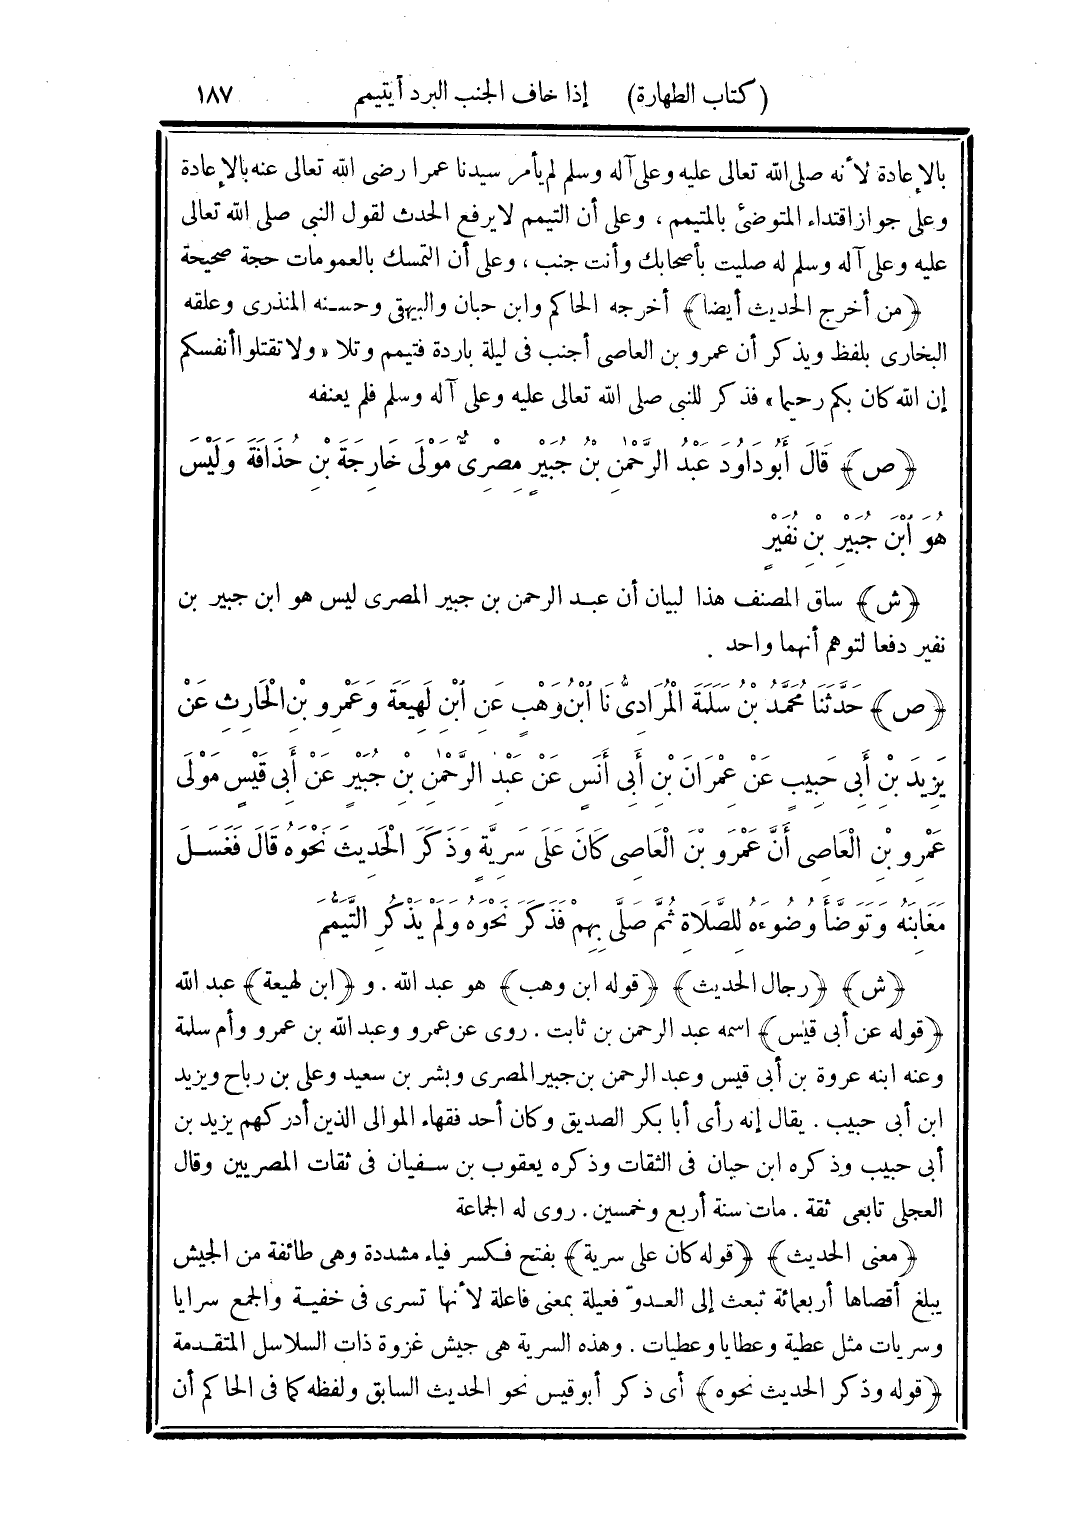 (كتاب الطهارة) إذا خاف الجنب البرد أيتيمم ١٨٧
بالإعادة لأنه صلى الله تعالى عليه وعلى آله وسلم لم يأمر سيدنا عمرا رضى الله تعالى عنه بالإعادة
وعلى جواز اقتداء المتوضئ بالمتيمم ، وعلى أن التيمم لا يرفع الحدث لقول النبى صلى الله تعالى
عليه وعلى آله وسلم له صليت بأصحابك وأنت جنب ، وعلى أن التمسك بالعمومات حجة صحيحة
﴿من أخرج الحديث أيضا﴾ أخرجه الحاكم وابن حبان والبيهقى وحسنه المنذرى وعلقه
البخارى بلفظ ويذكر أن عمرو بن العاصى أجنب فى ليلة باردة فتيمم وتلا «ولا تقتلوا أنفسكم
إن الله كان بكم رحيما» فذكر للنبى صلى الله تعالى عليه وعلى آله وسلم فلم يعنفه
﴿ص﴾ قَالَ أَبُو دَاوُدَ عَبْدُ الرَّحْمٰنِ بْنُ جُبَيْرٍ مِصْرِىٌّ مَوْلَى خَارِجَةَ بْنِ حُذَافَةَ وَلَيْسَ
هُوَ ابْنَ جُبَيْرِ بْنِ نُفَيْرٍ
﴿ش﴾ ساق المصنف هذا لبيان أن عبد الرحمن بن جبير المصرى ليس هو ابن جبير بن
نفير دفعا لتوهم أنهما واحد .
﴿ص﴾ حَدَّثَنَا مُحَمَّدُ بْنُ سَلَمَةَ الْمُرَادِىُّ نَا ابْنُ وَهْبٍ عَنِ ابْنِ لَهِيعَةَ وَعَمْرِو بْنِ الْحَارِثِ عَنْ
يَزِيدَ بْنِ أَبِى حَبِيبٍ عَنْ عِمْرَانَ بْنِ أَبِى أَنَسٍ عَنْ عَبْدِ الرَّحْمٰنِ بْنِ جُبَيْرٍ عَنْ أَبِى قَيْسٍ مَوْلَى
عَمْرِو بْنِ الْعَاصِى أَنَّ عَمْرَو بْنَ الْعَاصِى كَانَ عَلَى سَرِيَّةٍ وَذَكَرَ الْحَدِيثَ نَحْوَهُ قَالَ فَغَسَلَ
مَغَابِنَهُ وَتَوَضَّأَ وُضُوءَهُ لِلصَّلَاةِ ثُمَّ صَلَّى بِهِمْ فَذَكَرَ نَحْوَهُ وَلَمْ يَذْكُرِ التَّيَمُّمَ
﴿ش﴾ ﴿رجال الحديث﴾ ﴿قوله ابن وهب﴾ هو عبد الله . و ﴿ابن لهيعة﴾ عبد الله
﴿قوله عن أبى قيس﴾ اسمه عبد الرحمن بن ثابت . روى عن عمرو وعبد الله بن عمرو وأم سلمة
وعنه ابنه عروة بن أبى قيس وعبد الرحمن بن جبير المصرى وبشر بن سعيد وعلى بن رباح ويزيد
ابن أبى حبيب . يقال إنه رأى أبا بكر الصديق وكان أحد فقهاء الموالى الذين أدركهم يزيد بن
أبى حبيب وذكره ابن حبان فى الثقات وذكره يعقوب بن سفيان فى ثقات المصريين وقال
العجلى تابعى ثقة . مات سنة أربع وخمسين . روى له الجماعة
﴿معنى الحديث﴾ ﴿قوله كان على سرية﴾ بفتح فكسر فياء مشددة وهى طائفة من الجيش
يبلغ أقصاها أربعمائة تبعث إلى العدوّ فعيلة بمعنى فاعلة لأنها تسرى فى خفية والجمع سرايا
وسريات مثل عطية وعطايا وعطيات . وهذه السرية هى جيش غزوة ذات السلاسل المتقدمة
﴿قوله وذكر الحديث نحوه﴾ أى ذكر أبو قيس نحو الحديث السابق ولفظه كما فى الحاكم أن